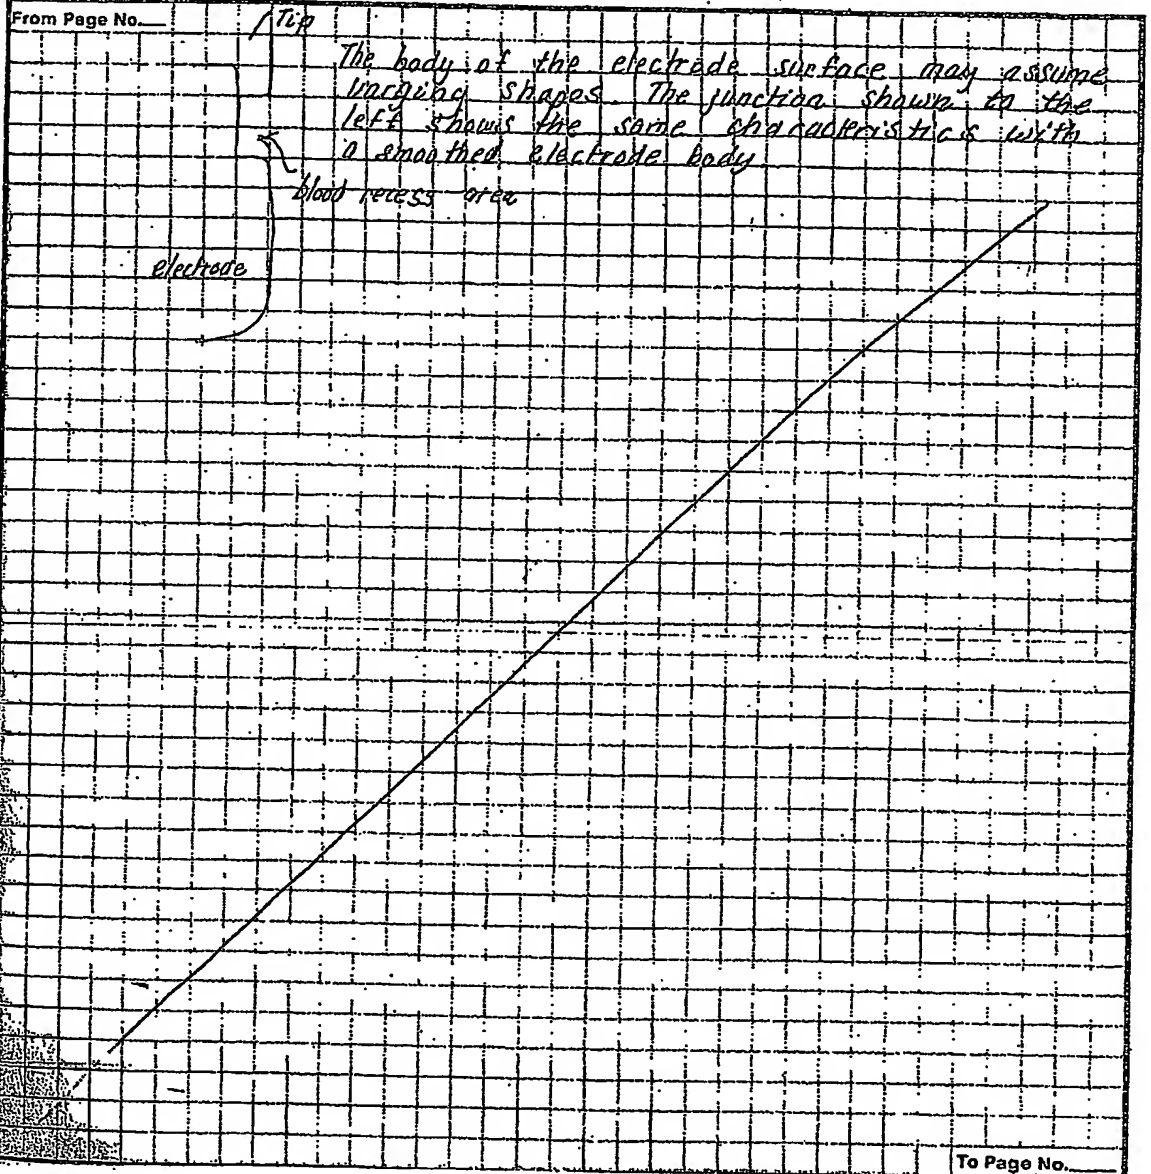 From Page No.
Tip
The body of the electrode surface may assume
varying shapes. The junction shown to the
left shows the same characteristics with
a smoothed electrode body
blood recess area
electrode
To Page No.